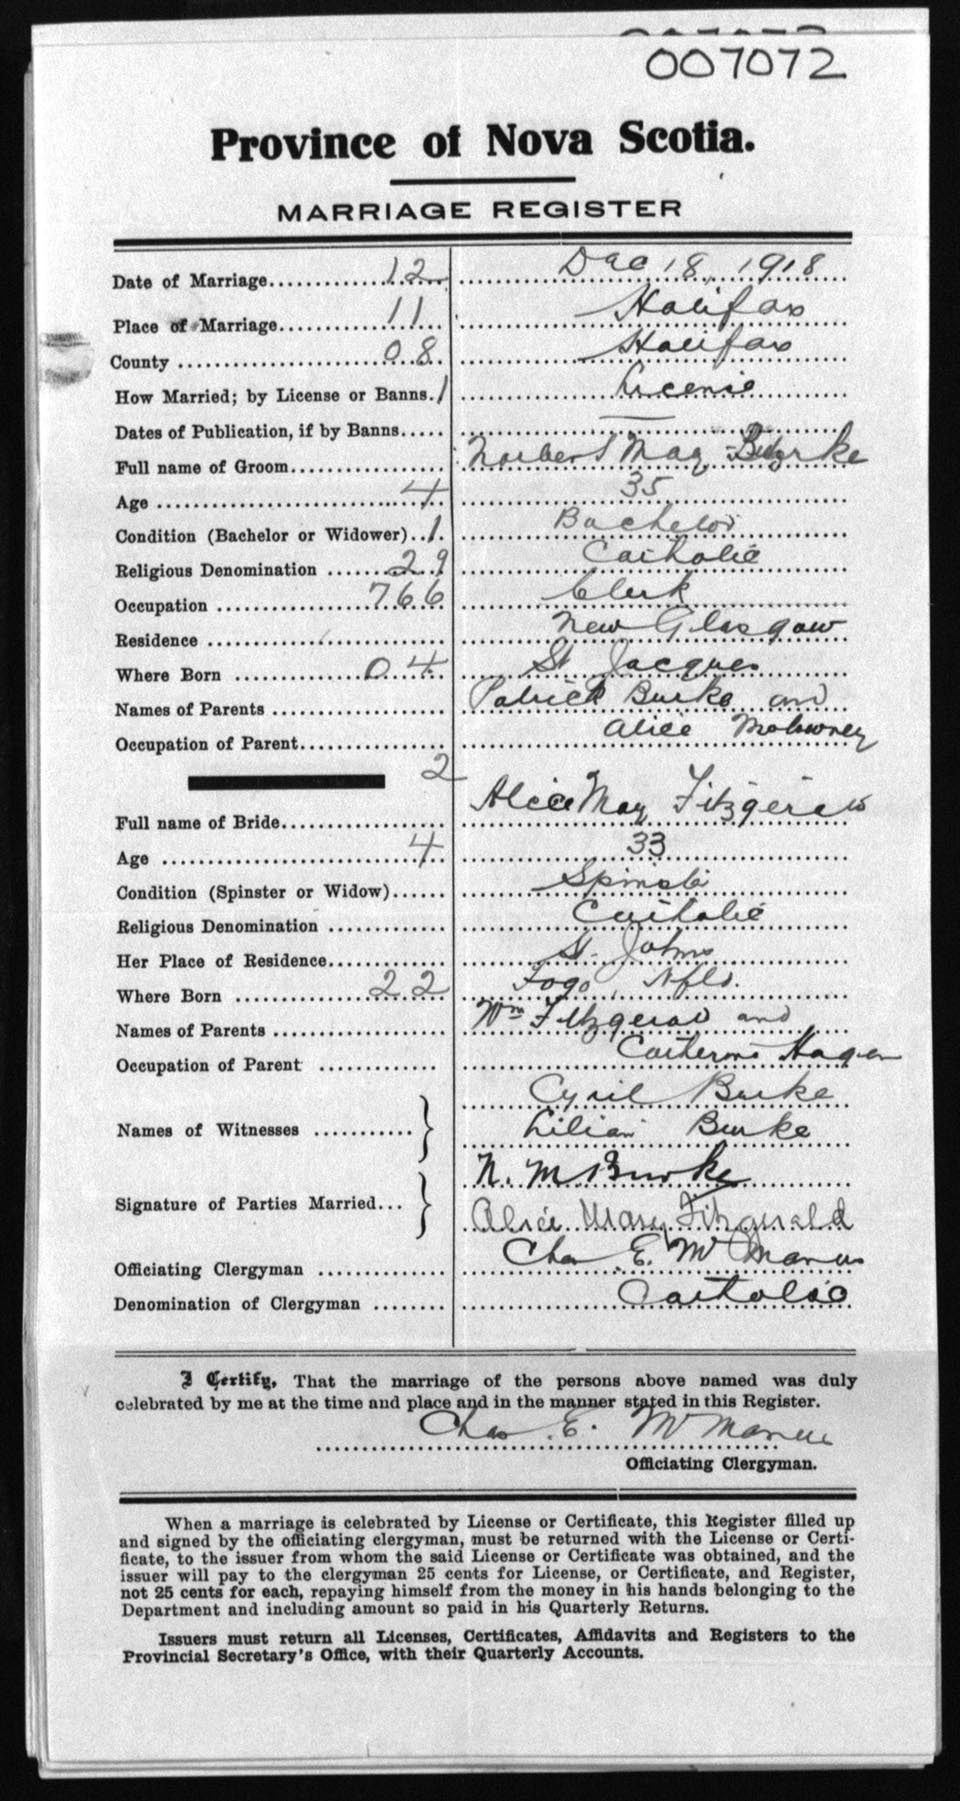 007072
Province of Nova Scotia.
MARRIAGE REGISTER
Date of Marriage 12 Dec 18, 1918
Place of Marriage 11 Halifax
County 08 Halifax
How Married; by License or Banns. 1 License
Dates of Publication, if by Banns —
Full name of Groom Norbert May Burke
Age 4 35
Condition (Bachelor or Widower) 1 Bachelor
Religious Denomination 29 Catholic
Occupation 766 Clerk
Residence New Glasgow
Where Born 04 St Jacques
Names of Parents Patrick Burke and
Occupation of Parent Alice
2
Full name of Bride Alice May Fitzgerald
Age 4 33
Condition (Spinster or Widow) Spinster
Religious Denomination Catholic
Her Place of Residence St. Johns
Where Born 22 Fogo, Nfld.
Names of Parents Wm Fitzgerald and
Occupation of Parent Catherine
Cyril Burke
Names of Witnesses Lilian Burke
N. M Burke
Signature of Parties Married Alice Mary Fitzgerald
Officiating Clergyman Chas. E. McManus
Denomination of Clergyman Catholic
I Certify, That the marriage of the persons above named was duly
celebrated by me at the time and place and in the manner stated in this Register.
Chas. E. McManus
Officiating Clergyman.
When a marriage is celebrated by License or Certificate, this Register filled up
and signed by the officiating clergyman, must be returned with the License or Certi-
ficate, to the issuer from whom the said License or Certificate was obtained, and the
issuer will pay to the clergyman 25 cents for License, or Certificate, and Register,
not 25 cents for each, repaying himself from the money in his hands belonging to the
Department and including amount so paid in his Quarterly Returns.
Issuers must return all Licenses, Certificates, Affidavits and Registers to the
Provincial Secretary's Office, with their Quarterly Accounts.